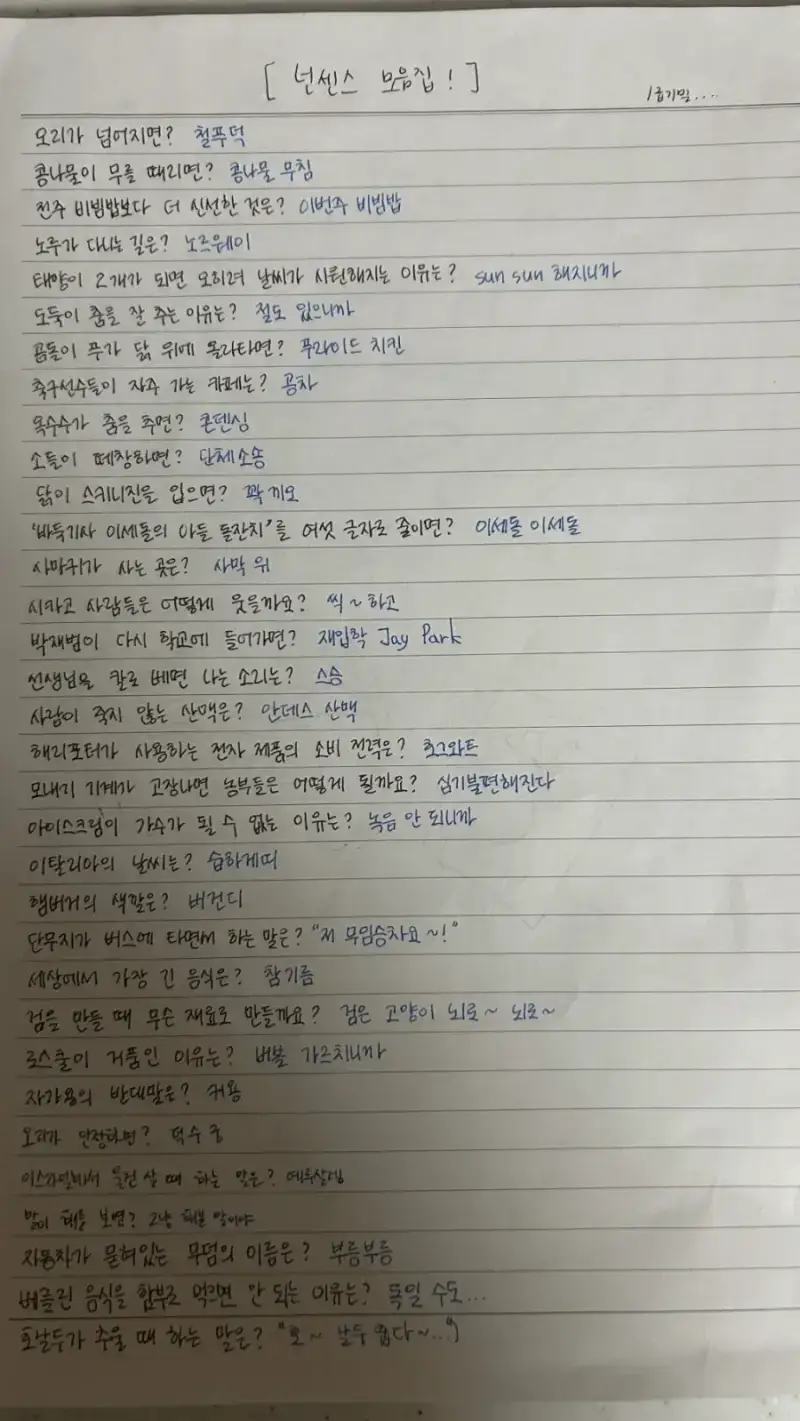 [ 넌센스 모음집 ! ]
1급기밀....
오리가 넘어지면? 철푸덕
콩나물이 무를 때리면? 콩나물 무침
전주 비빔밥보다 더 신선한 것은? 이번주 비빔밥
노루가 다니는 길은? 노르웨이
태양이 2개가 되면 오히려 날씨가 시원해지는 이유는? sun sun 해지니까
도둑이 춤을 잘 추는 이유는? 절도 있으니까
곰돌이 푸가 닭 위에 올라타면? 푸라이드 치킨
축구선수들이 자주 가는 카페는? 공차
옥수수가 춤을 추면? 콘덴싱
소들이 떼창하면? 단체소송
닭이 스키니진을 입으면? 꽉끼오
'바둑기사 이세돌의 아들 돌잔치'를 여섯 글자로 줄이면? 이세돌 이세돌
사마귀가 사는 곳은? 사막 위
시카고 사람들은 어떻게 웃을까요? 씩~하고
박재범이 다시 학교에 들어가면? 재입학 Jay Park
선생님을 칼로 베면 나는 소리는? 스승
사람이 죽지 않는 산맥은? 안데스 산맥
해리포터가 사용하는 전자 제품의 소비 전력은? 호그와트
모내기 기계가 고장나면 농부들은 어떻게 될까요? 심기불편해진다
아이스크림이 가수가 될 수 없는 이유는? 녹음 안 되니까
이탈리아의 날씨는? 습하게띠
햄버거의 색깔은? 버건디
단무지가 버스에 타면서 하는 말은? "저 무임승차요~!"
세상에서 가장 긴 음식은? 참기름
검을 만들 때 무슨 재료로 만들까요? 검은 고양이 뇌로~ 뇌로~
로스쿨이 거품인 이유는? 버블 가르치니까
자가용의 반대말은? 커용
오리가 안정하면? 덕수궁
이스라엘에서 물건 살 때 하는 말은? 예루살렘
말이 패를 보면? 그냥 패본 말이야
자동차가 묻혀있는 무덤의 이름은? 부릉부릉
버블린 음식을 함부로 먹으면 안 되는 이유는? 독일 수도...
호날두가 추울 때 하는 말은? "호~ 날두 춥다~..."